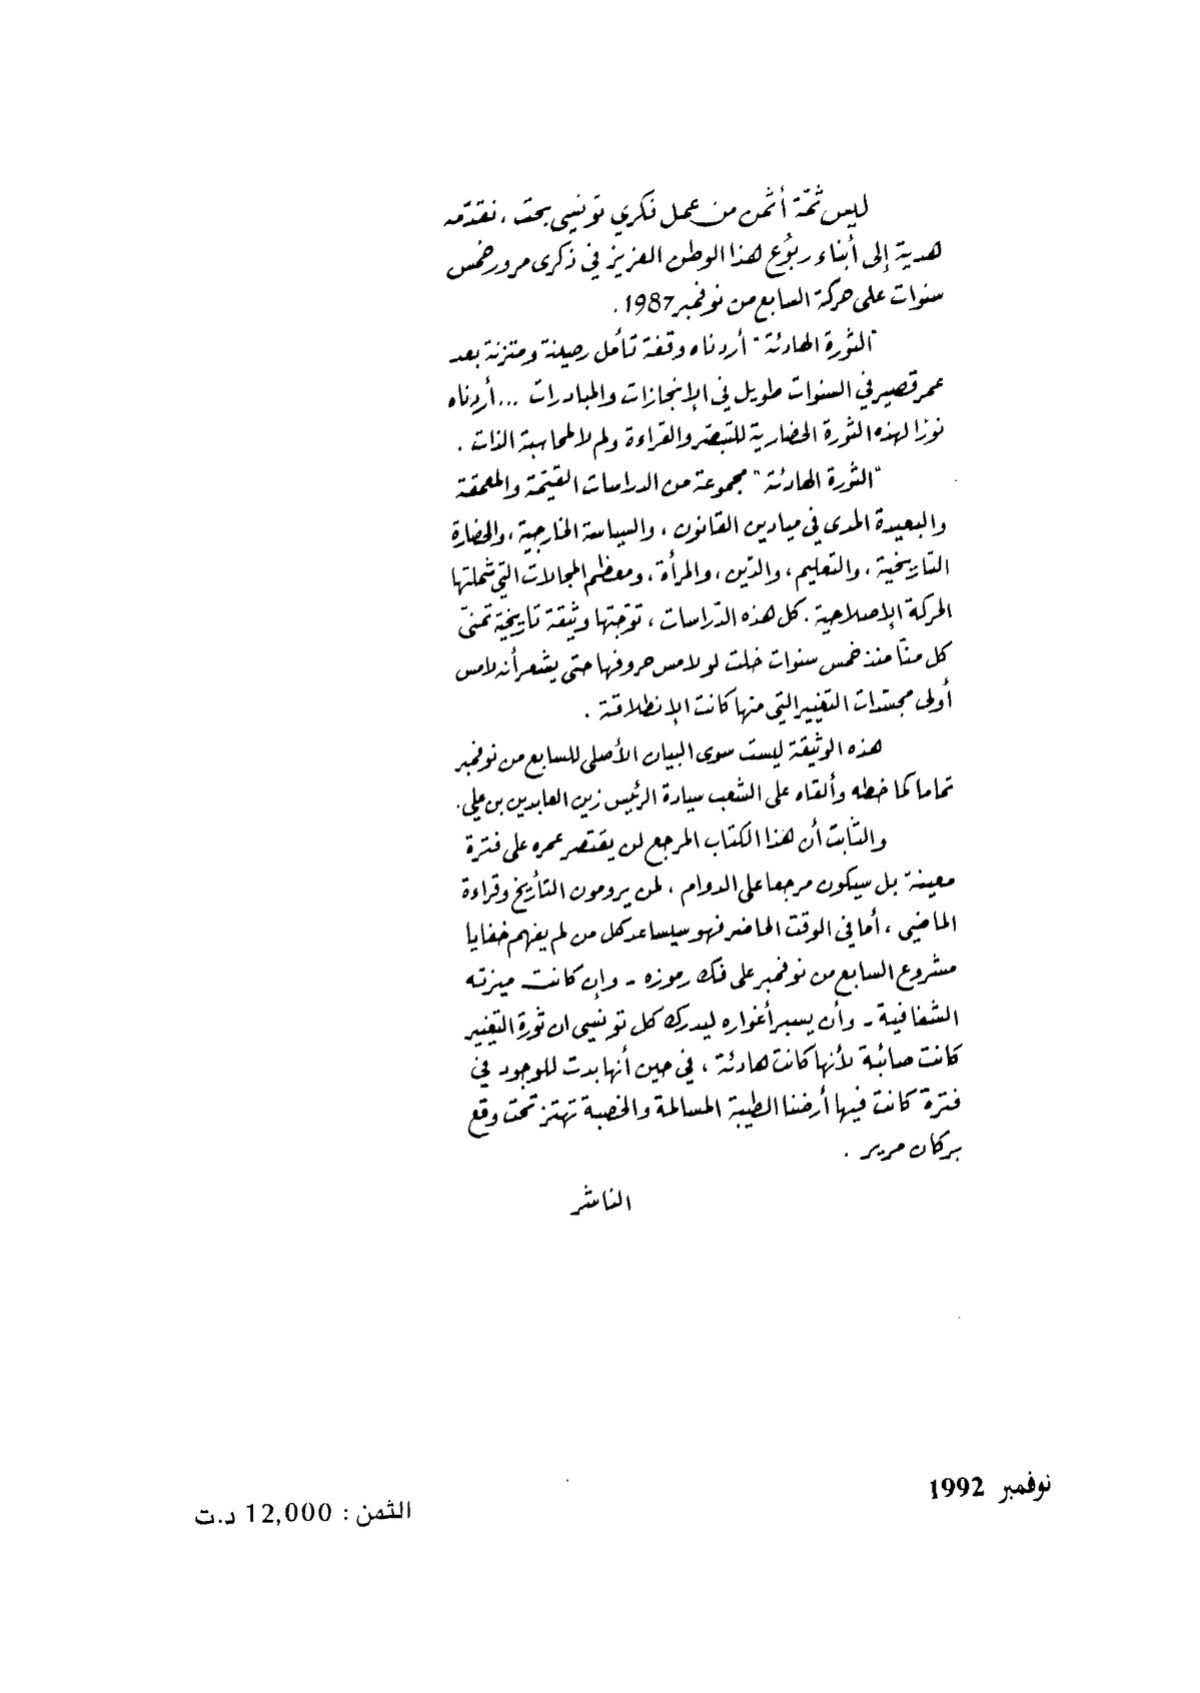 ليس ثمّة أثمن من عمل فكري تونسي بحت ، نقدّمه
هدية إلى أبناء ربوع هذا الوطن العزيز في ذكرى مرور خمس
سنوات على حركة السابع من نوفمبر 1987 .
"الثورة الهادئة" أردناه وقفة تأمل رصينة ومتزنة بعد
عمر قصير في السنوات طويل في الإنجازات والمبادرات ... أردناه
نورًا لهذه الثورة الحضارية للتبصّر والقراءة ولم لا لمحاسبة الذات .
"الثورة الهادئة" مجموعة من الدراسات القيّمة والمعمقة
والبعيدة المدى في ميادين القانون ، والسياسة الخارجية ، والحضارة
التاريخية ، والتعليم ، والدّين ، والمرأة ، ومعظم المجالات التي شملتها
الحركة الإصلاحية . كل هذه الدّراسات ، توّجتها وثيقة تاريخية تمنىّ
كل منّا منذ خمس سنوات خلت لو لامس حروفها حتى يشعر أنه لامس
أولى مجسّدات التغيير التي منها كانت الإنطلاقة .
هذه الوثيقة ليست سوى البيان الأصلي للسابع من نوفمبر
تماما كما خطه وألقاه على الشعب سيادة الرئيس زين العابدين بن علي .
والثابت أن هذا الكتاب المرجع لن يقتصر عمره على فترة
معينة بل سيكون مرجعا على الدوام ، لمن يرومون التأريخ وقراءة
الماضي ، أما في الوقت الحاضر فهو سيساعد كل من لم يفهم خفايا
مشروع السابع من نوفمبر على فك رموزه - وإن كانت ميزته
الشفافية - وأن يسبر أغواره ليدرك كل تونسي ان ثورة التغيير
كانت صائبة لأنها كانت هادئة ، في حين أنها بدت للوجود في
فترة كانت فيها أرضنا الطيبة المسالمة والخصبة تهتز تحت وقع
بركان مرير .
الناشر
نوفمبر 1992
الثمن : 12,000 د.ت